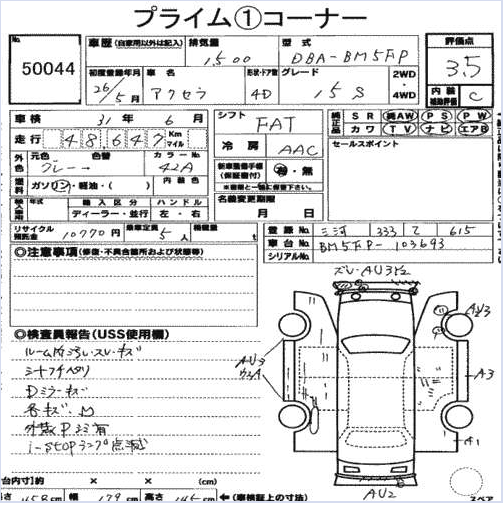 プライム①コーナー
No.
50044
車歴 (自家用以外は記入)
排気量
1500
型式
DBA-BM5FP
初度登録年月
26/5月
車名
アクセラ
形状・ドア数
4D
グレード
15S
2WD
・
4WD
評価点
3.5
内装
補助評価
C
車検
31年 6月
走行
48,647
Km
マイル
シフト
FAT
冷房
AAC
純正品
SR
純AW
PS
PW
カワ
TV
ナビ
エアB
セールスポイント
外色
元色
グレー→
色替
カラーNo.
42A
燃料
ガソリン・軽油・( )
内装色
新車整備手帳
(保証書付)
有・無
輸入車用
年式
輸入区分
ハンドル
ディーラー・並行
左・右
名義変更期限
月 日
リサイクル預託金
10770円
乗車定員
5人
積載量
t
登録No.
三河 333 て 615
車台No.
BM5FP-103693
シリアルNo.
◎注意事項(修復・不具合箇所および状態等)
◎検査員報告(USS使用欄)
ルーム内汚レ・スレ・キズ
シートフチヘリ
Dミラーキズ
i-STOPランプ点滅
ズレ・AU3
AU3
A3
A1
AU2
× × (cm)
幅
179
cm
高さ
145
cm
←(車検証上の寸法)
スペア